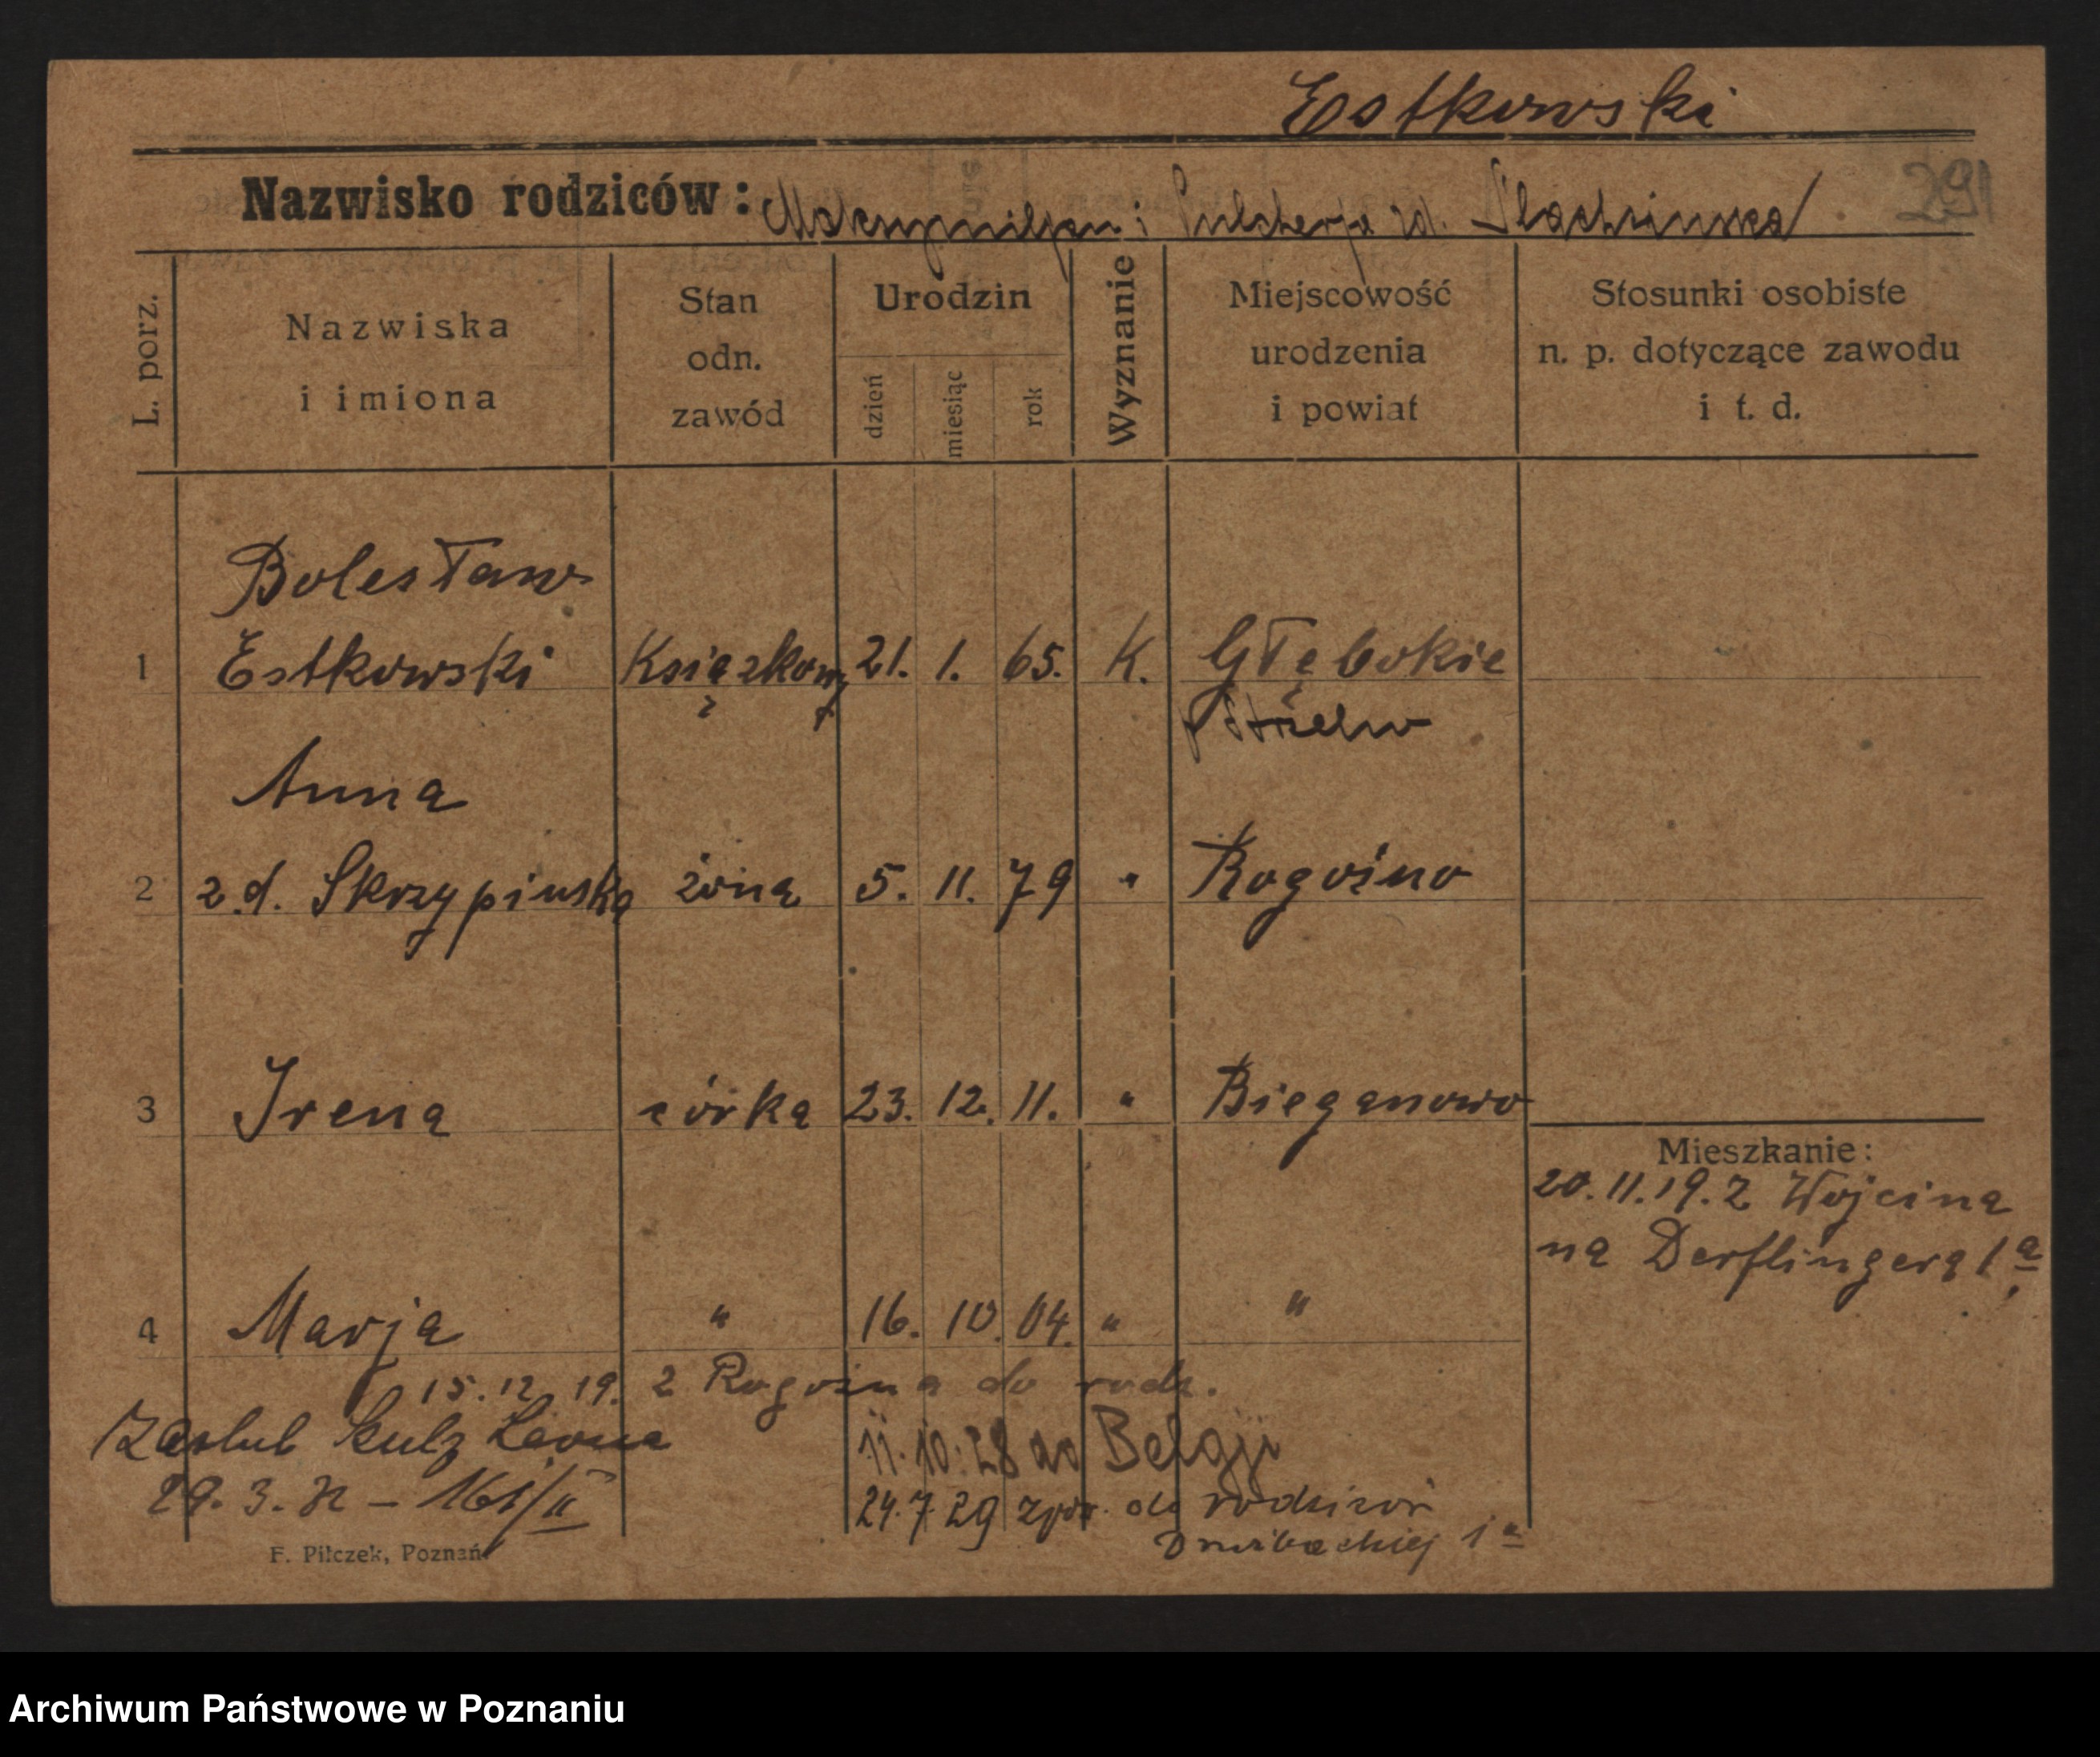 Estkowski
291
Nazwisko rodziców: Maksymiljan i Pulcherja zd.
L. porz.
Nazwiska
i imiona
Stan
odn.
zawód
Urodzin
dzień
miesiąc
rok
Wyznanie
Miejscowość
urodzenia
i powiat
Stosunki osobiste
n. p. dotyczące zawodu
i t. d.
Bolesław
1 Estkowski Książkowy 21. 1. 65. K. Głębokie
p Strzelno
Anna
2 z.d. Skrzypinska żona 5. 11. 79 " Rogoźno
3 Irena córka 23. 12. 11. " Bieganowo
Mieszkanie:
20.11.19. z Wojcina
na Derflingera 1a
4 Marja " 16. 10. 04. " "
15.12.19. z Rogoźna do rodz.
Zaslub Leona
11.10.28 do Belgji
29.3. – 161/II
24.7.29 zpow. do rodziców
1a
F. Pilczek, Poznań
Archiwum Państwowe w Poznaniu